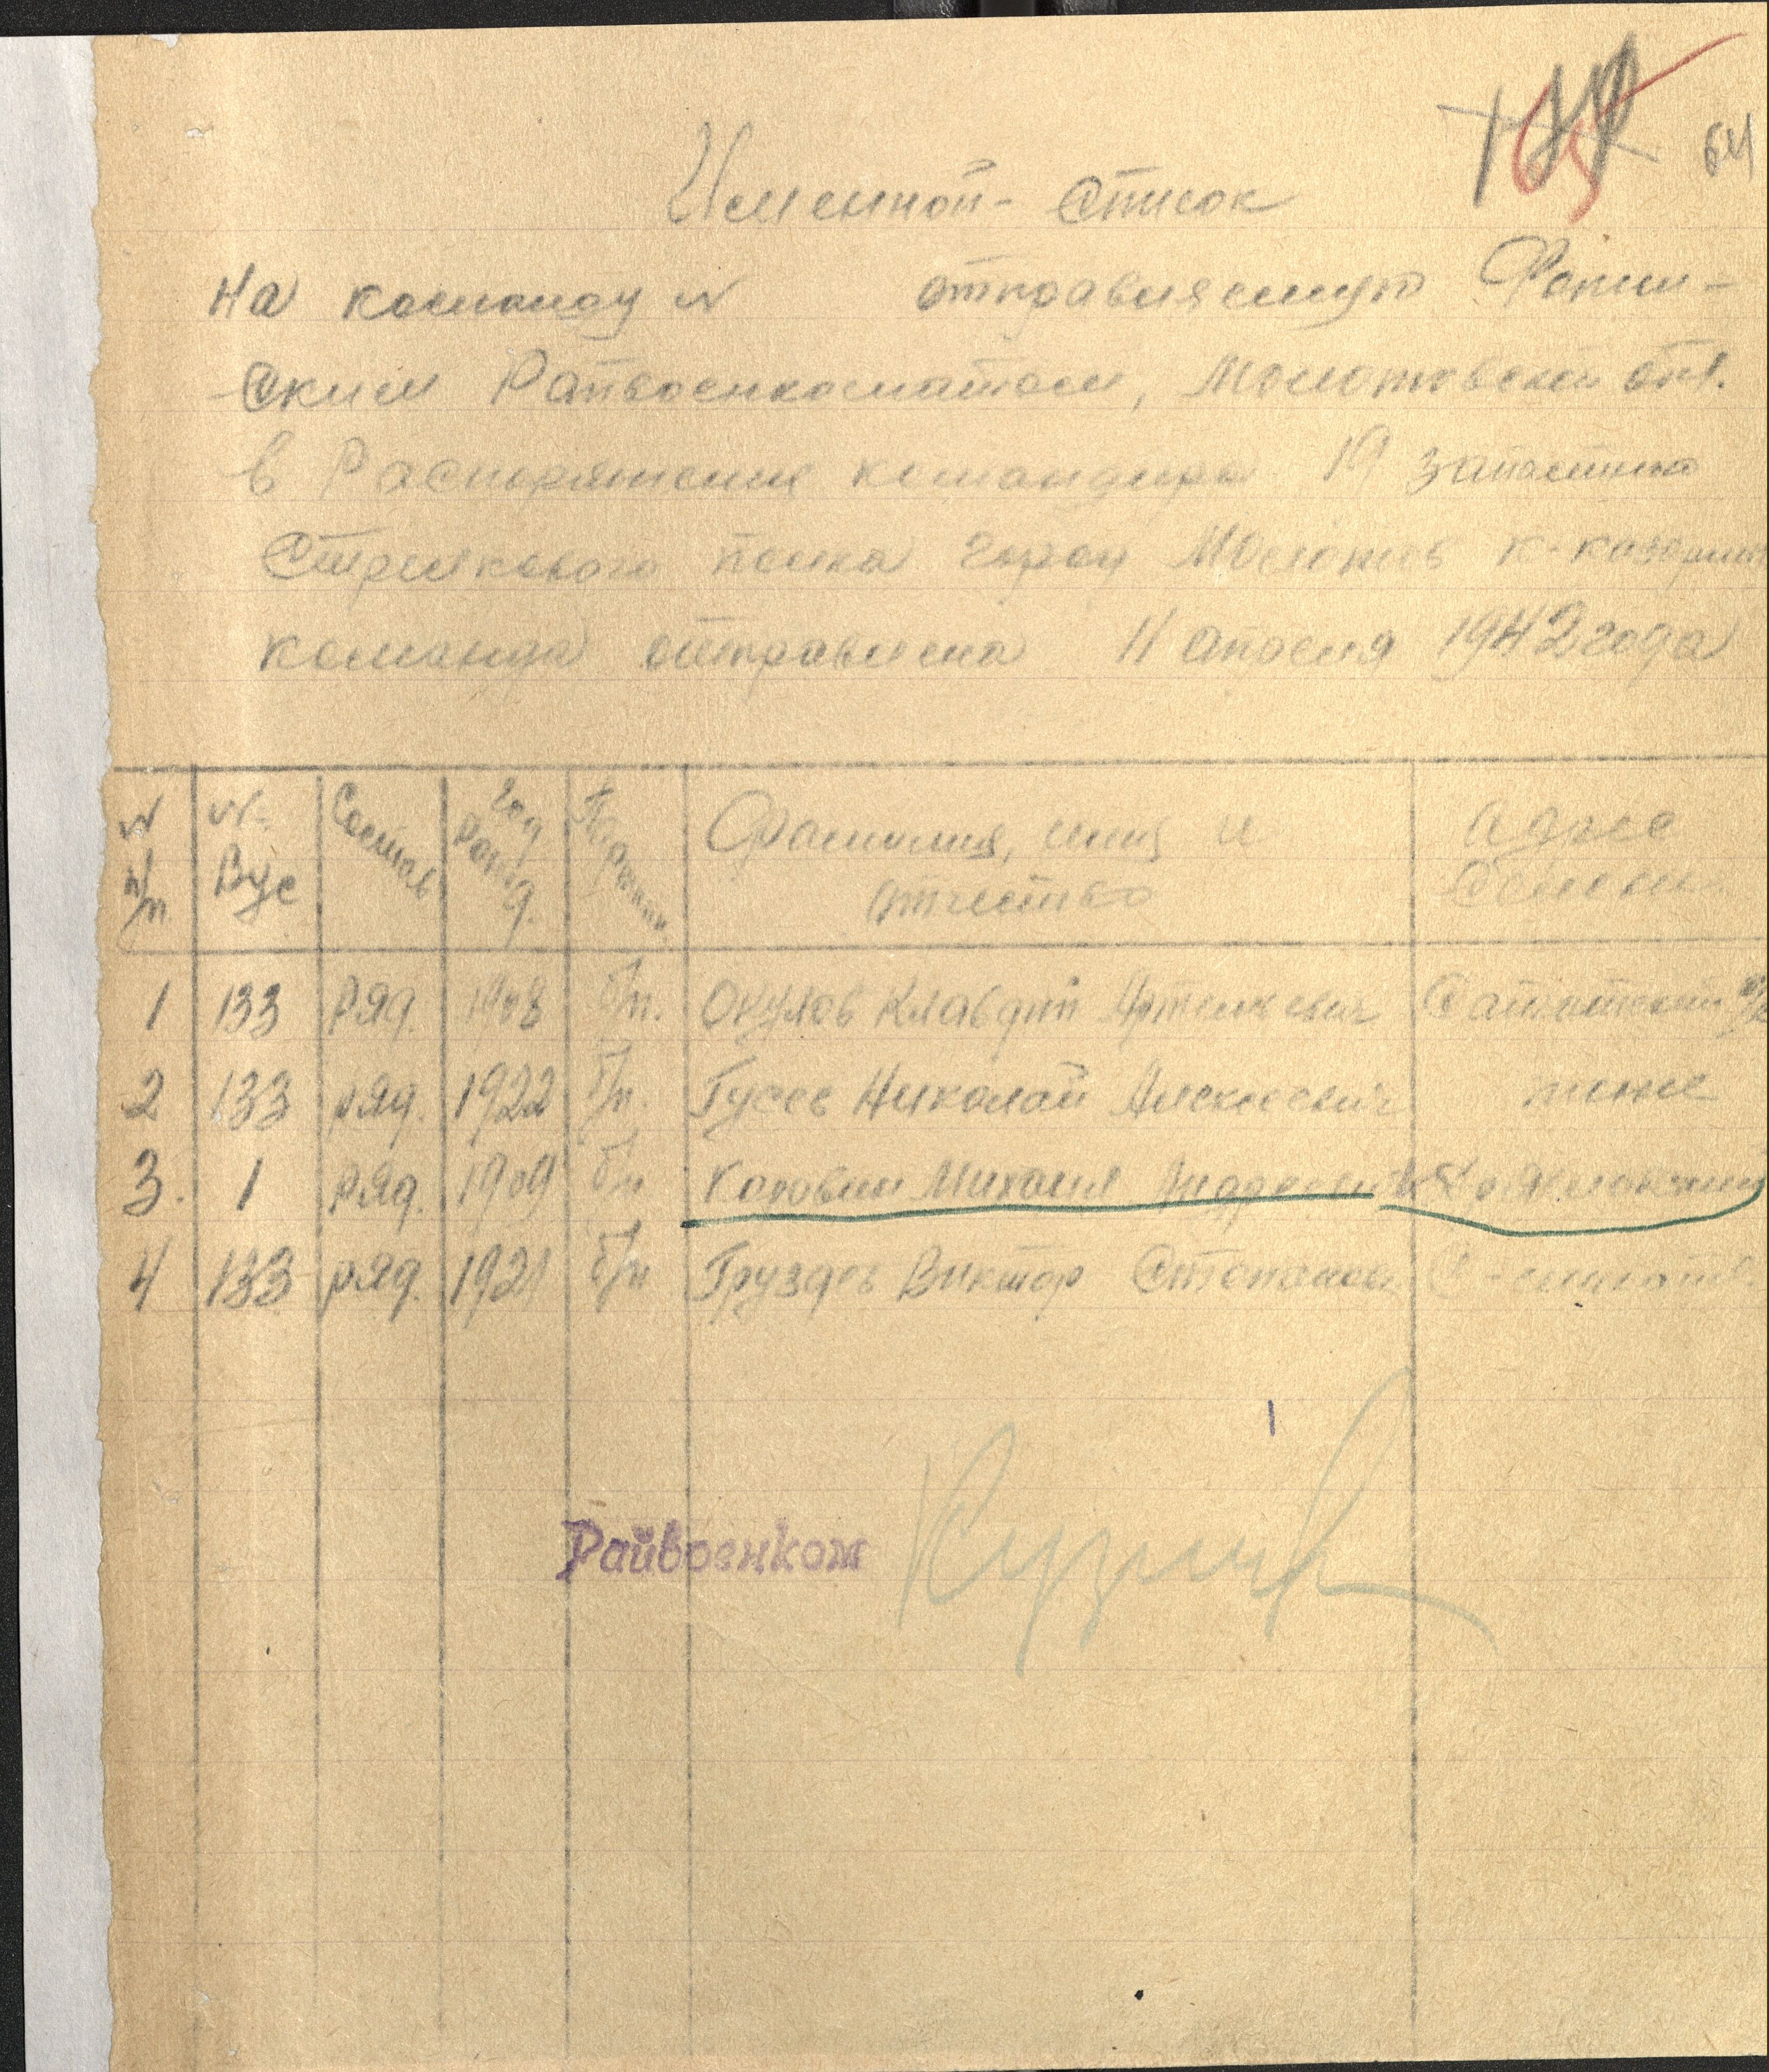 64
Именной - список
на команду № отправляемую Фокин-
ским Райвоенкоматом, Молотовской обл.
в Распоряжение командира 19 запастного
Стрелкового полка город Молотов
команда отправлена 11 апреля 1942 года
№ п/п № Вус Состав год рожд. Фамилия, имя и отчество адрес
1 133 ряд. 1908 б/п. Окулов Клавдий
2 133 ряд. 1922 б/п. Гусев Николай Алексеевич тоже
3. 1 ряд. 1909 б/п Коровин Михаил Андреевич
4 133 ряд. 1921 б/п Груздев Виктор Степанов.
Райвоенком